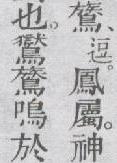 鷟、逗。鳳屬。神
也。鸑鷟鳴於